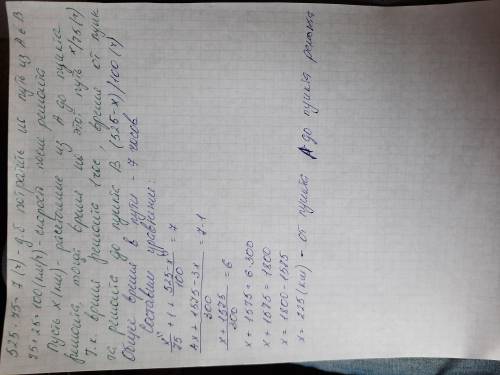 525 : 75 = 7 (ч) - д.б. потратить на путь из А в В
75 + 25 = 100 (км/ч) - скорость после ремонта
Пусть x (км) - расстояние из А до пункта
ремонта, тогда время на этот путь x/75 (ч)
Т.к. время ремонта 1 час, время от пунк
та ремонта до пункта В (525-x)/100 (ч)
Общее время в пути - 7 часов
Составим уравнение:
x/75 + 1 + (525-x)/100 = 7
(4x + 1575 - 3x)/300 = 7-1
(x + 1575)/300 = 6
x + 1575 = 6·300
x + 1575 = 1800
x = 1800 - 1575
x = 225 (км) - от пункта А до пункта ремонта